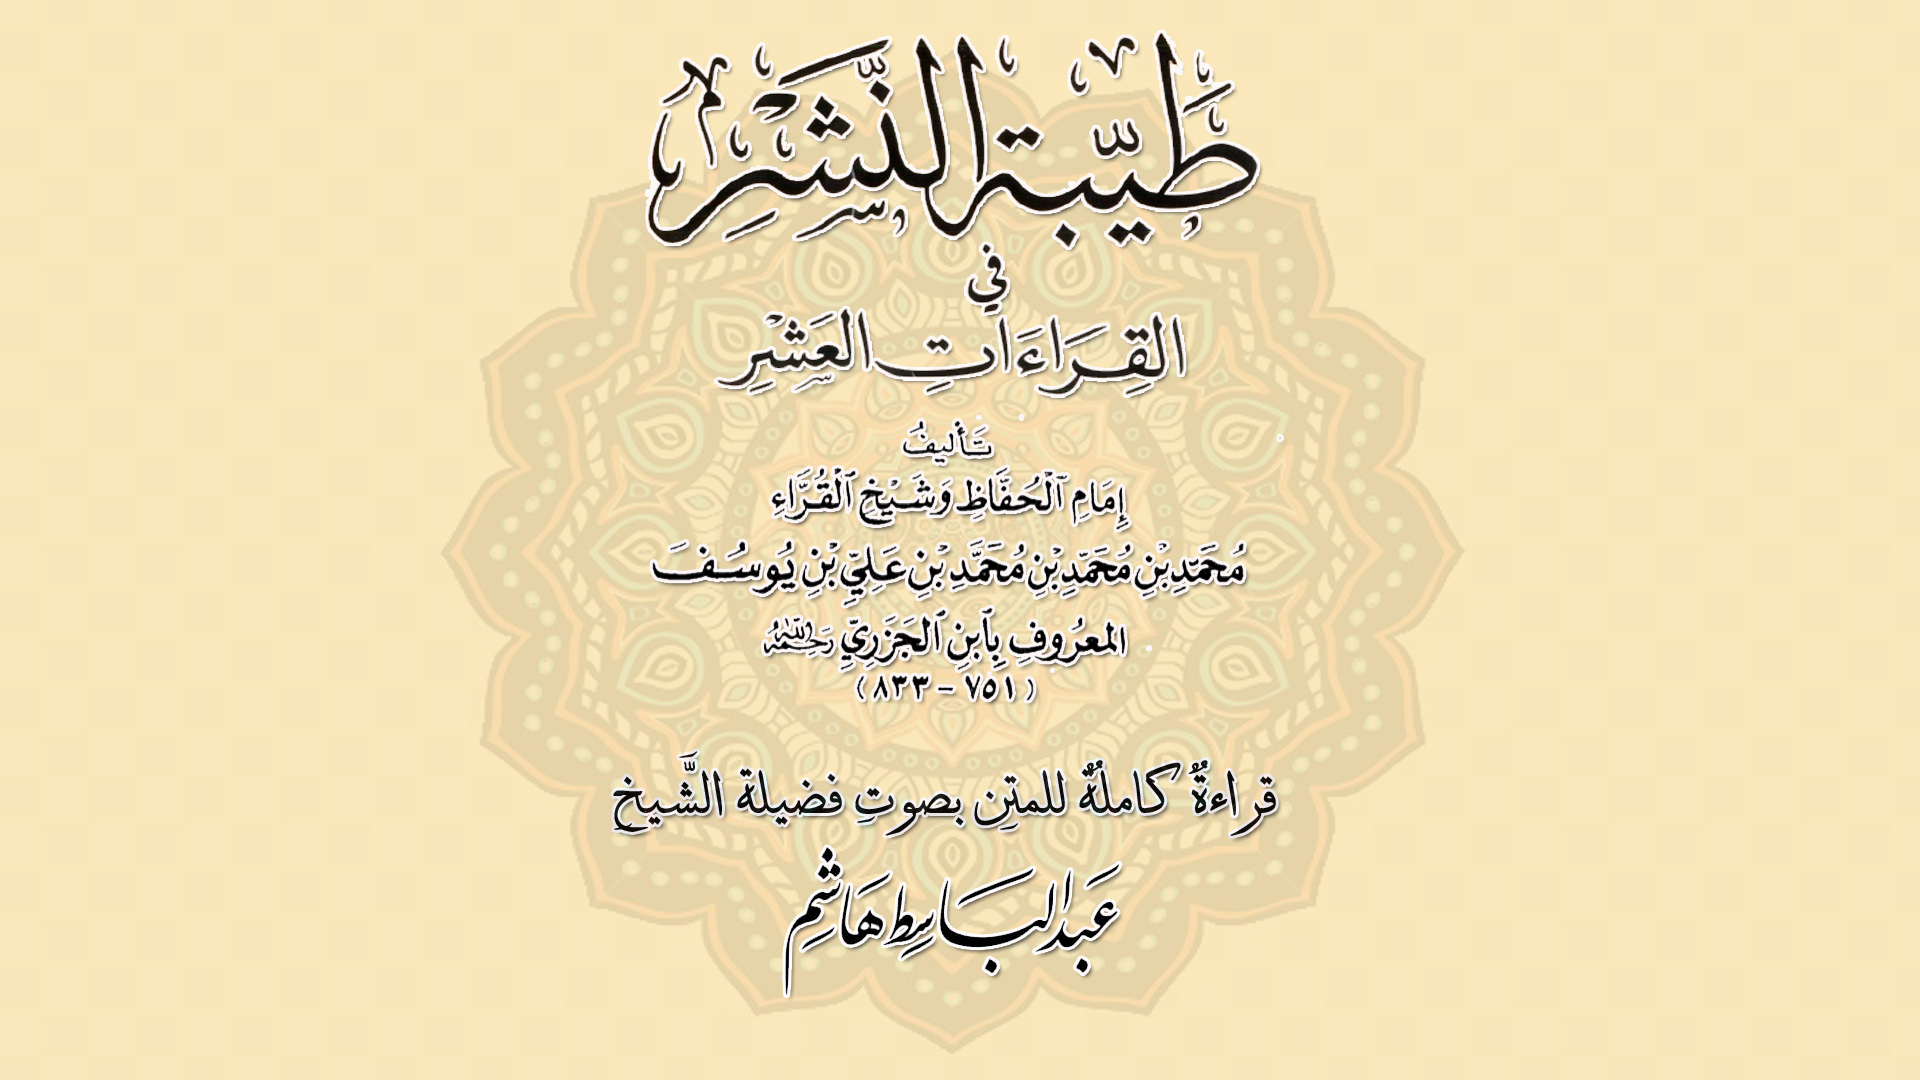 طَيِّبَةُ النَّشْرِ
فِي
القِرَاءَاتِ العَشْرِ
تَأليفُ
إِمَامِ ٱلْحُفَّاظِ وَشَيْخِ ٱلْقُرَّاءِ
مُحَمَّدِ بْنِ مُحَمَّدِ بْنِ مُحَمَّدِ بْنِ عَلِيِّ بْنِ يُوسُفَ
المعرُوفِ بِٱبنِ ٱلجَزَرِيِّ رَحِمَهُ اللَّهُ
(٧٥١ - ٨٣٣)
قراءةٌ كاملةٌ للمتنِ بصوتِ فضيلة الشَّيخِ
عَبدالبَاسِط هَاشِم